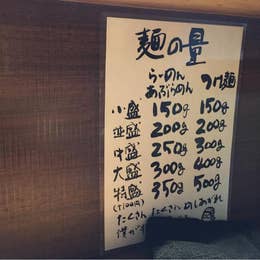 麺の量
らーめん
あぶらめん つけ麺
小盛 150g 150g
並盛 200g 200g
中盛 250g 300g
大盛 300g 400g
特盛 350g 500g
(+100円)
たくさん たくさん めしあがれ